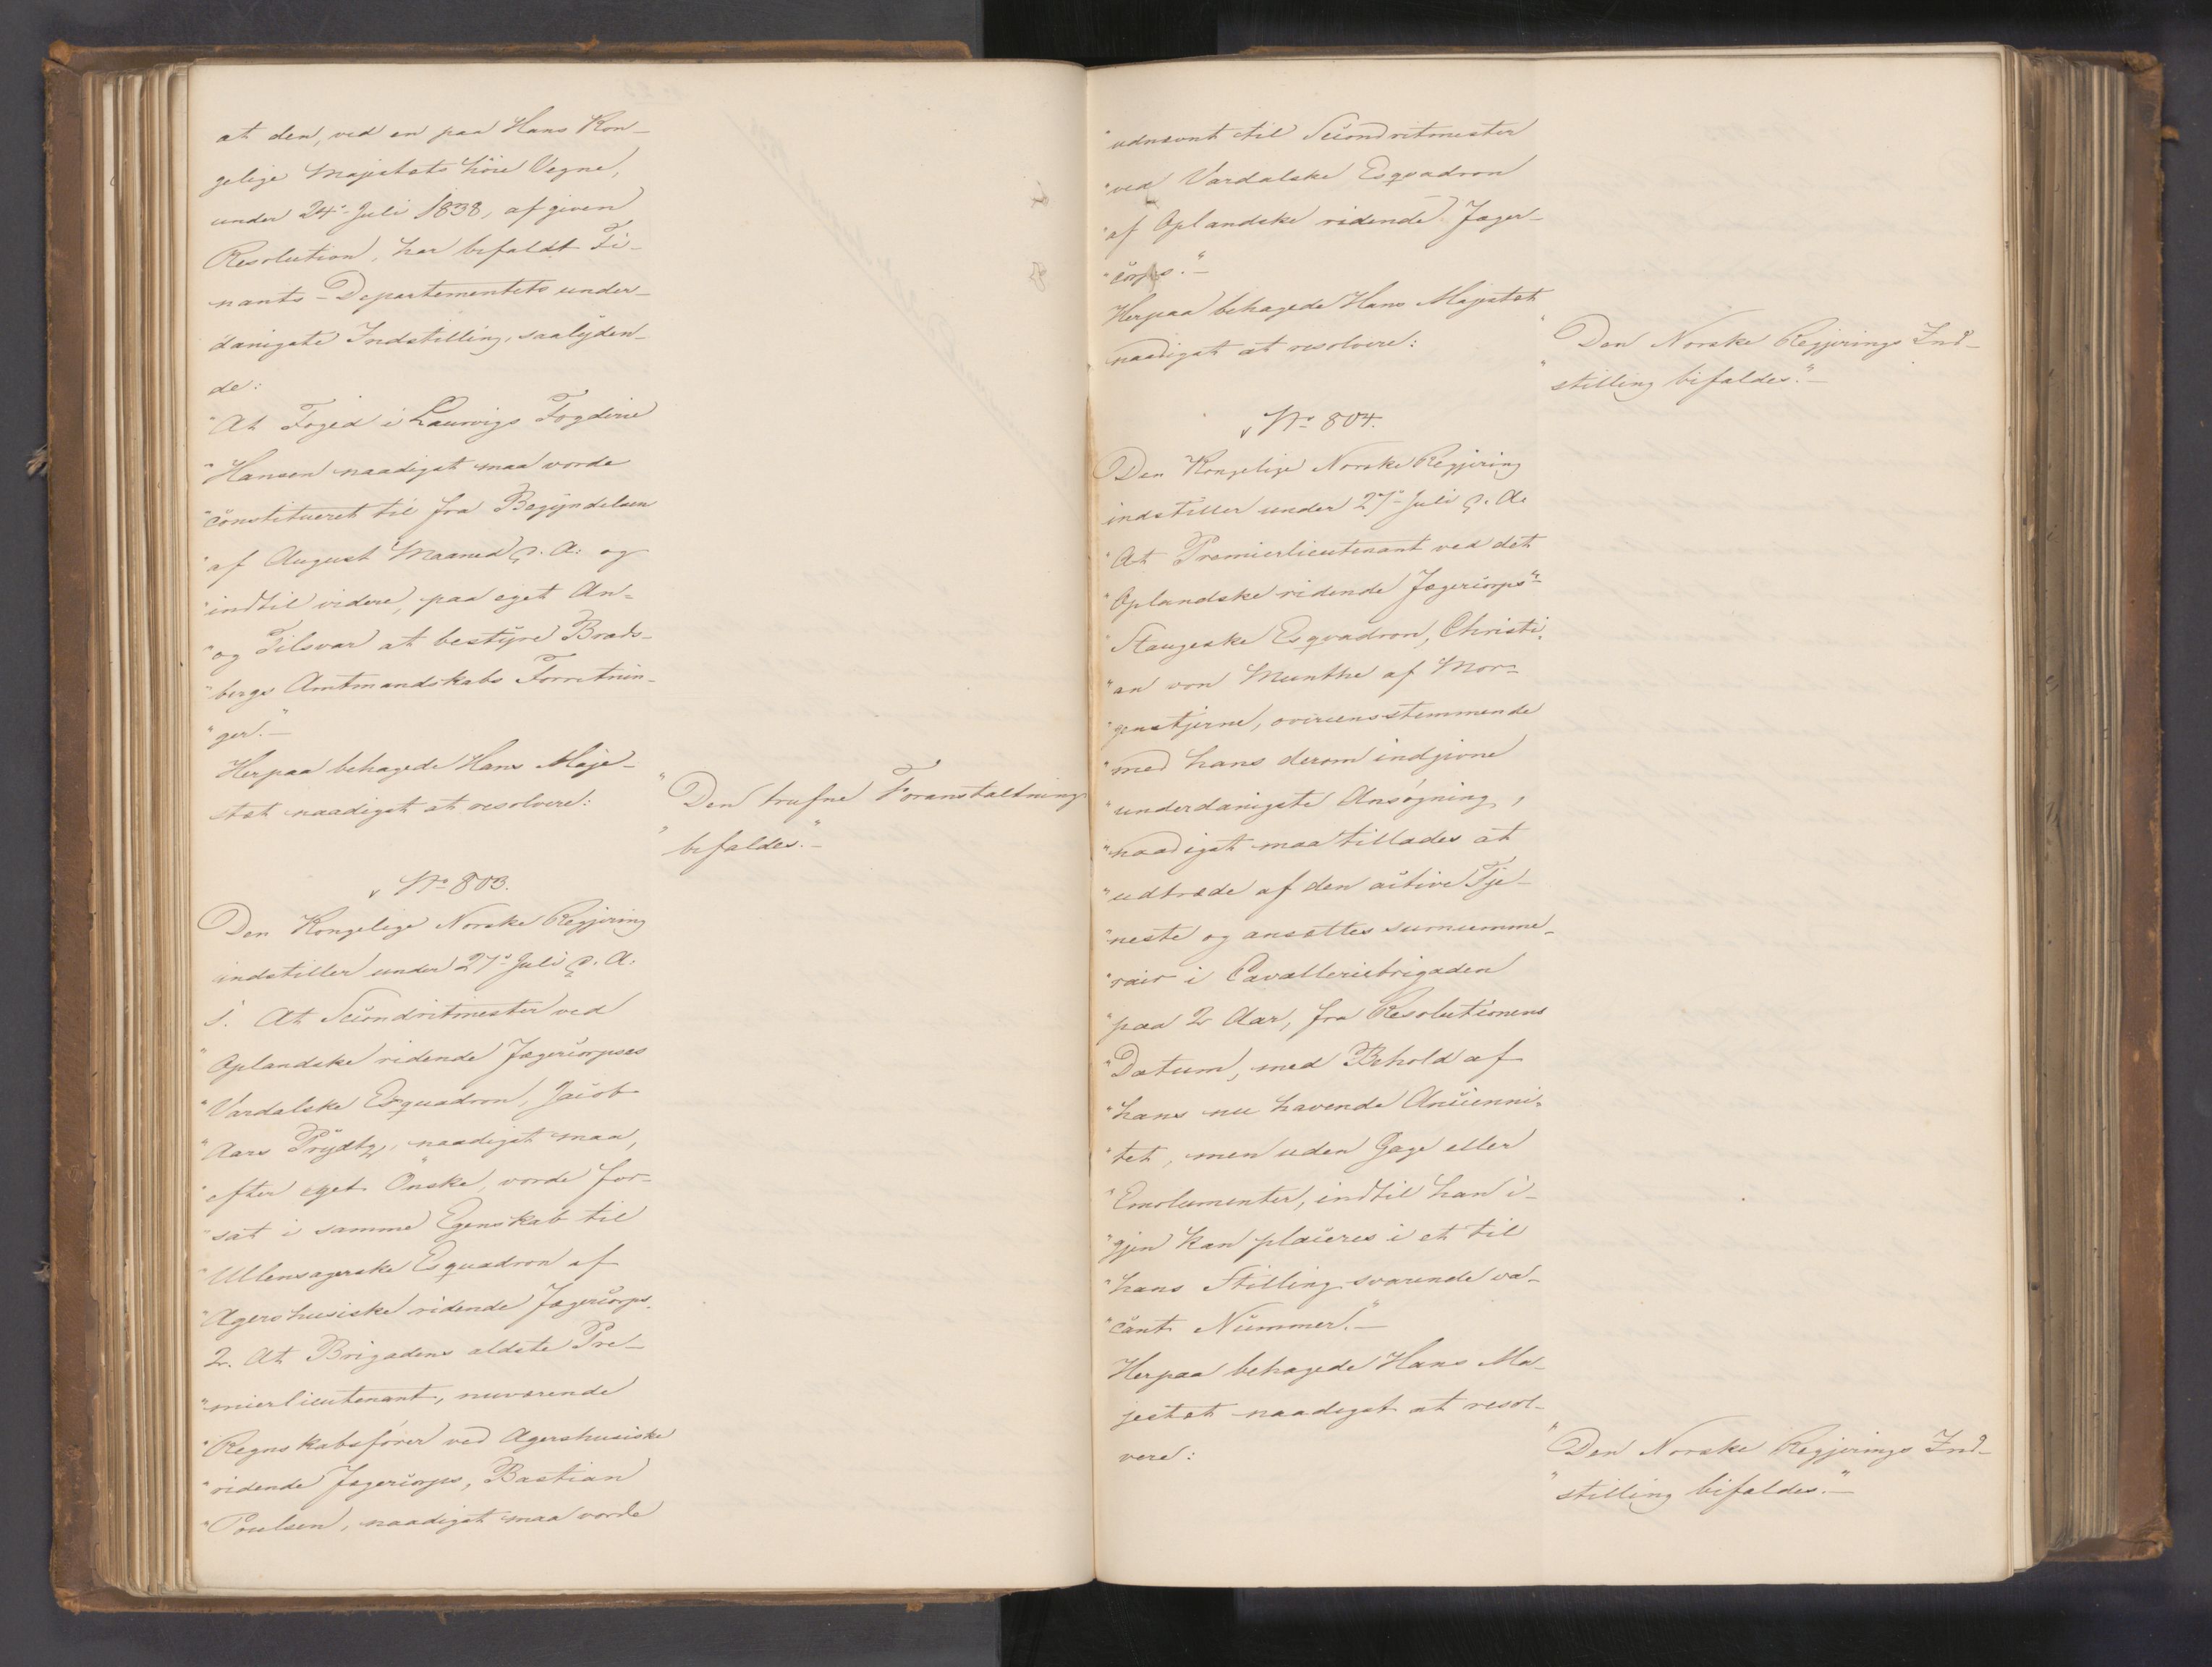 at den, ved en paa Hans Kon-
gelige Majestæts høie Vegne,
under 24de Juli 1838, afgiven
Resolution, har bifaldt Fi-
nants-Departementets under-
danigste Indstilling, saalyden-
de:
"At Foged i Laurvigs Fogderie
"Hansen naadigst maa vorde
"constitueret til fra Begyndelsen
"af August Maaned d. A. og
"indtil videre, paa eget An-
"og Tilsvar at bestyre Brads-
"bergs Amtmandskabs Forretnin-
"ger."-
Herpaa behagede Hans Maje-
stæt naadigst at resolvere:
"Den trufne Foranstaltning
"bifaldes."-
No 803.
Den Kongelige Norske Regjering
indstiller under 27de Juli d. A.
1. At Secondritmester ved
"Oplandske ridende Jægercorpses
"Vardalske Esquadron, Jacob
"Aars Prydtz, naadigst maa,
"efter eget Ønske, vorde for-
"sat i samme Egenskab til
"Ullensagerske Esquadron af
"Agershusiske ridende Jægercorps.
2. At Brigadens ældste Pre-
"mierlieutenant, nuværende
"Regnskabsfører ved Agershusiske
"ridende Jægercorps, Bastian
"Poulsen, naadigst maa vorde
"udnævnt til Secondritmester
"ved Vardalske Esqvadron
"af Oplandske ridende Jæger-
"corps."-
Herpaa behagede Hans Majestæt
naadigst at resolvere:
"Den Norske Regjerings Ind-
"stilling bifaldes."-
No 804.
Den Kongelige Norske Regjering
indstiller under 27de Juli d. A.
"At Premierlieutenant ved det
"Oplandske ridende Jægercorps's
"Stangeske Esqvadron, Christi-
"an von Munthe af Mor-
"genstjerne, overeensstemmende
"med hans derom indgivne
"underdanigste Ansøgning,
"naadigst maa tillades at
"udtræde af den active Tje-
"neste og ansættes surnumme-
"rair i Cavalleriebrigaden
"paa 2 Aar, fra Resolutionens
"Datum, med Behold af
"hans nu havende Ancienni-
"tet, men uden Gage eller
"Emolumenter, indtil han i-
"gjen kan placeres i et til
"hans Stilling svarende va-
"cant Nummer."-
Herpaa behagede Hans Ma-
jestæt naadigst at resol-
vere:
"Den Norske Regjerings Ind-
"stilling bifaldes."-